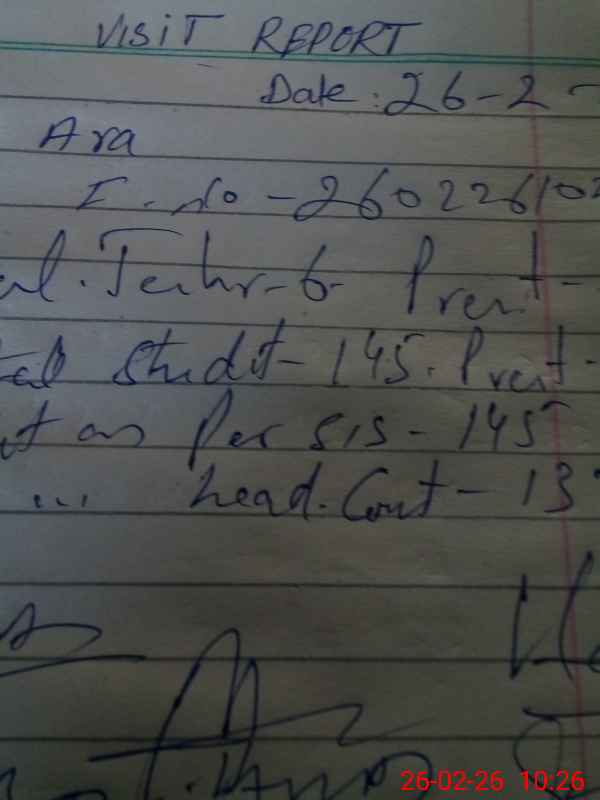 VISIT REPORT
Date: 26-2-
Ara
I. No - 26022610
al. Teahr-6- Prent-
tal Studet-145. Prent-
t as Per SIS-145
... head. Cont-13
26-02-26 10:26